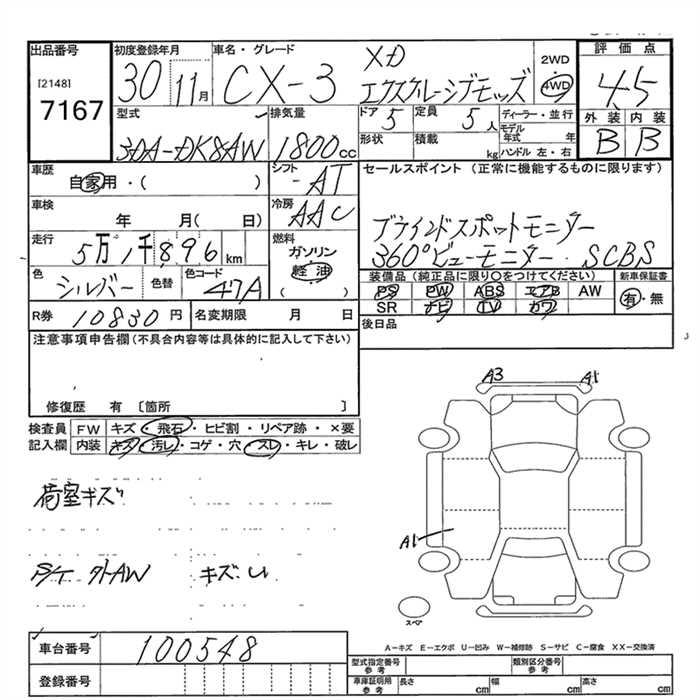 出品番号
[2148]
7167
初度登録年月
30 11月
車名・グレード
CX-3
XD
エクスクルーシブモッズ
2WD
4WD
評価点
4.5
外装 内装
B B
型式
3DA-DK8AW
排気量
1800cc
ドア 5
定員 5人
ディーラー・並行
モデル年式 年
形状
積載 kg
ハンドル 左・右
車歴
自家用・( )
シフト
AT
車検
年 月( 日)
冷房
AAC
走行
5万1千896km
燃料
ガソリン
軽油
( )
色
シルバー
色替
色コード
47A
R券 10830円
名変期限 月 日
セールスポイント (正常に機能するものに限ります)
ブラインドスポットモニター
360°ビューモニター・SCBS
装備品(純正品に限り○をつけてください)
PS PW ABS エアB AW
SR ナビ TV カワ
新車保証書
有・無
後日品
注意事項申告欄(不具合内容等は具体的に記入して下さい)
修復歴 有 [箇所 ]
検査員 FW キズ・飛石・ヒビ割・リペア跡・×要
記入欄 内装 キズ・汚レ・コゲ・穴・スレ・キレ・破レ
荷室キズ
S/T 外AW キズ
A3 A1
A1
スペア
A-キズ E-エクボ U-凹み W-補修跡 S-サビ C-腐食 XX-交換済
車台番号 100548
登録番号
型式指定番号 参考
類別区分番号 参考
車庫証明用 参考
長さ cm 幅 cm 高さ cm